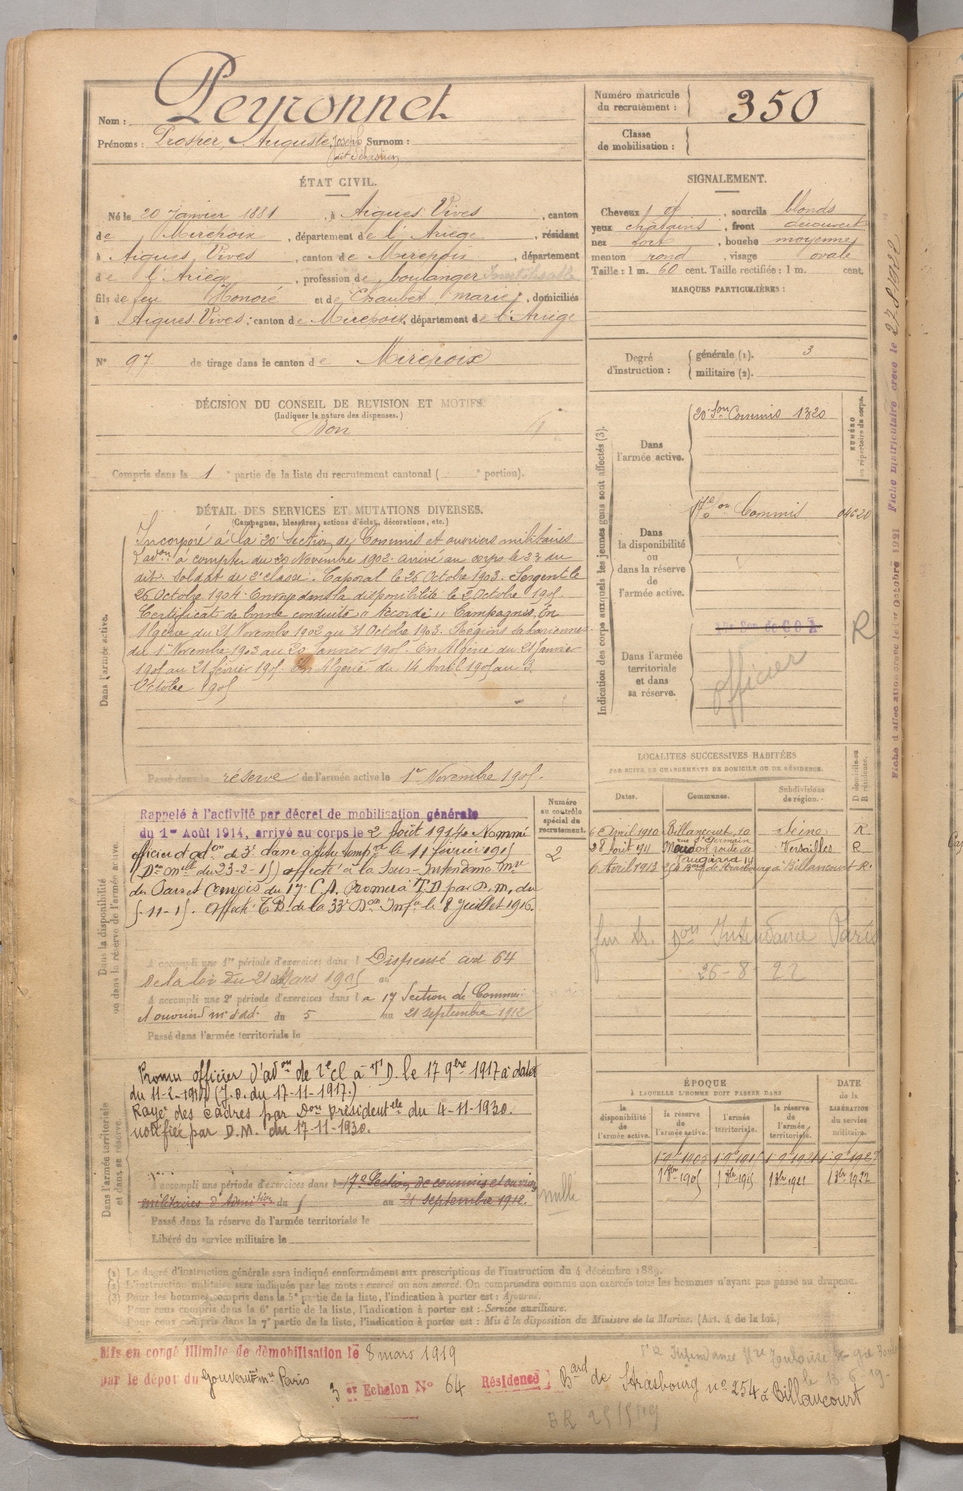 Nom : Peyronnet
Prénoms : Prosper, Auguste, Joseph Surnom :
(dit Sébastien)
ÉTAT CIVIL.
Né le 20 Janvier 1881, à Aigues-Vives, canton
de Mirepoix, département de l'Ariège, résidant
à Aigues-Vives, canton de Mirepoix, département
de l'Ariège, profession de boulanger
fils de feu Honoré et de Chaubet Marie, domiciliés
à Aigues-Vives, canton de Mirepoix, département de l'Ariège
N° 97 de tirage dans le canton de Mirepoix
DÉCISION DU CONSEIL DE REVISION ET MOTIFS
(Indiquer la nature des dispenses.)
Bon
Compris dans la 1 e partie de la liste du recrutement cantonal ( e portion).
DÉTAIL DES SERVICES ET MUTATIONS DIVERSES.
(Campagnes, blessures, actions d'éclat, décorations, etc.)
Dans l'armée active.
Incorporé à la 20e Section de Commis et ouvriers militaires
d'adon à compter du 20 Novembre 1902 arrivé au corps le 23 du
dit. Soldat de 2e classe. Caporal le 26 Octobre 1903. Sergent le
26 Octobre 1904. Envoyé dans la disponibilité le 2 Octobre 1905.
Certificat de bonne conduite "Accordé". Campagnes. En
Algérie du 21 Novembre 1902 au 31 Octobre 1903. Régions sahariennes
du 1er Novembre 1903 au 20 Janvier 1905. En Algérie du 21 Janvier
1905 au 21 février 1905. En Algérie du 14 Avril 1905 au 3
Octobre 1905
Passé dans la réserve de l'armée active le 1er Novembre 1905.
Dans la disponibilité
ou dans la réserve de l'armée active.
Rappelé à l'activité par décret de mobilisation générale
du 1er Août 1914, arrivé au corps le 2 août 1914. Nommé
officier d'adon de 3e classe à titre tempre le 11 février 1915
(Don melle du 23-2-15) affecté à la Sous-Intendance mre
du 17e C.A. Promu à T.D. par D. M. du
5-11-15. Affecté T.D. de la 33e Don Infie le 8 Juillet 1916.
A accompli une 1re période d'exercices dans l Dispensé art 64
de la loi du 21 Mars 1905 au
A accompli une 2e période d'exercices dans la 17 Section de Commis
et ouvriers m. d'ad. du 5 au 21 septembre 1912
Passé dans l'armée territoriale le
Numéro
au contrôle
spécial du
recrutement.
2
Dans l'armée territoriale
et dans sa réserve.
Promu officier d'adon de 2e cl à T.D. le 17 9bre 1917 à dater
du 11-2-1917 (J.O. du 17-11-1917.)
Rayé des cadres par Don présidentelle du 4-11-1930.
notifiée par D.M. du 17-11-1930.
A accompli une période d'exercices dans la 17e Section de commis et ouvriers
militaires d'Admition du 5 au 21 septembre 1912.
nulle
Passé dans la réserve de l'armée territoriale le
Libéré du service militaire le
Numéro matricule
du recrutement : 350
Classe
de mobilisation :
SIGNALEMENT.
Cheveux, sourcils blonds
yeux châtains, front découvert
nez fort, bouche moyenne
menton rond, visage ovale
Taille : 1 m. 60 cent. Taille rectifiée : 1 m. cent.
MARQUES PARTICULIÈRES :
Degré
d'instruction : générale (1). 3
militaire (2).
Indication des corps auxquels les jeunes gens sont affectés (3).
NUMÉRO
au répertoire du corps.
Dans
l'armée active.
20e Son Commis 1320
Dans
la disponibilité
ou
dans la réserve
de
l'armée active.
17e Son Commis 04620
Dans l'armée
territoriale
et dans
sa réserve.
17e Son de C O A
officier
R
Fiche d'affectation créée le 1er octobre 1921 Fiche matriculaire créée le
LOCALITÉS SUCCESSIVES HABITÉES
PAR SUITE DE CHANGEMENTS DE DOMICILE OU DE RÉSIDENCE.
Dates. Communes. Subdivisions
de région. D domicile ou
R résidence.
6 Avril 1910 Billancourt, 10 Seine R
r. St Germain
28 Août 1911 Meudon route de Versailles R
Vaugirard 14
6 Avril 1913 254 Bard de Strasbourg à Billancourt R.
Intendance Paris
26-8-22
ÉPOQUE
À LAQUELLE L'HOMME DOIT PASSER DANS
la
disponibilité
de
l'armée active. la réserve
de
l'armée active. l'armée
territoriale. la réserve
de
l'armée
territoriale. DATE
de la
LIBÉRATION
du service
militaire.
1 8bre 1905 1 8bre 1915 1 8bre 1921 1 8bre 1922
(1) Le degré d'instruction générale sera indiqué conformément aux prescriptions de l'instruction du 4 décembre 1889.
(2) L'instruction militaire sera indiquée par les mots : exercé ou non exercé. On comprendra comme non exercés tous les hommes n'ayant pas passé au drapeau.
(3) Pour les hommes compris dans la 5e partie de la liste, l'indication à porter est : Ajourné.
Pour ceux compris dans la 6e partie de la liste, l'indication à porter est : Service auxiliaire.
Pour ceux compris dans la 7e partie de la liste, l'indication à porter est : Mis à la disposition du Ministre de la Marine. (Art. 4 de la loi.)
Mis en congé illimité de démobilisation le 8 mars 1919
par le dépôt du Gouvernt mre Paris
3 er Echelon N° 64 Résidence Bard de Strasbourg n° 254 à Billancourt